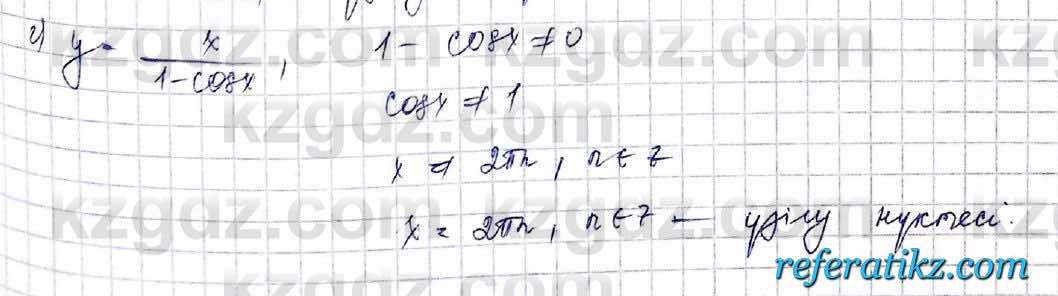 г) y = x / (1 - cosx), 1 - cosx ≠ 0
cosx ≠ 1
x ≠ 2πn, n ∈ Z
x = 2πn, n ∈ Z — үзілу нүктесі.
kzgdz.com
referatikz.com